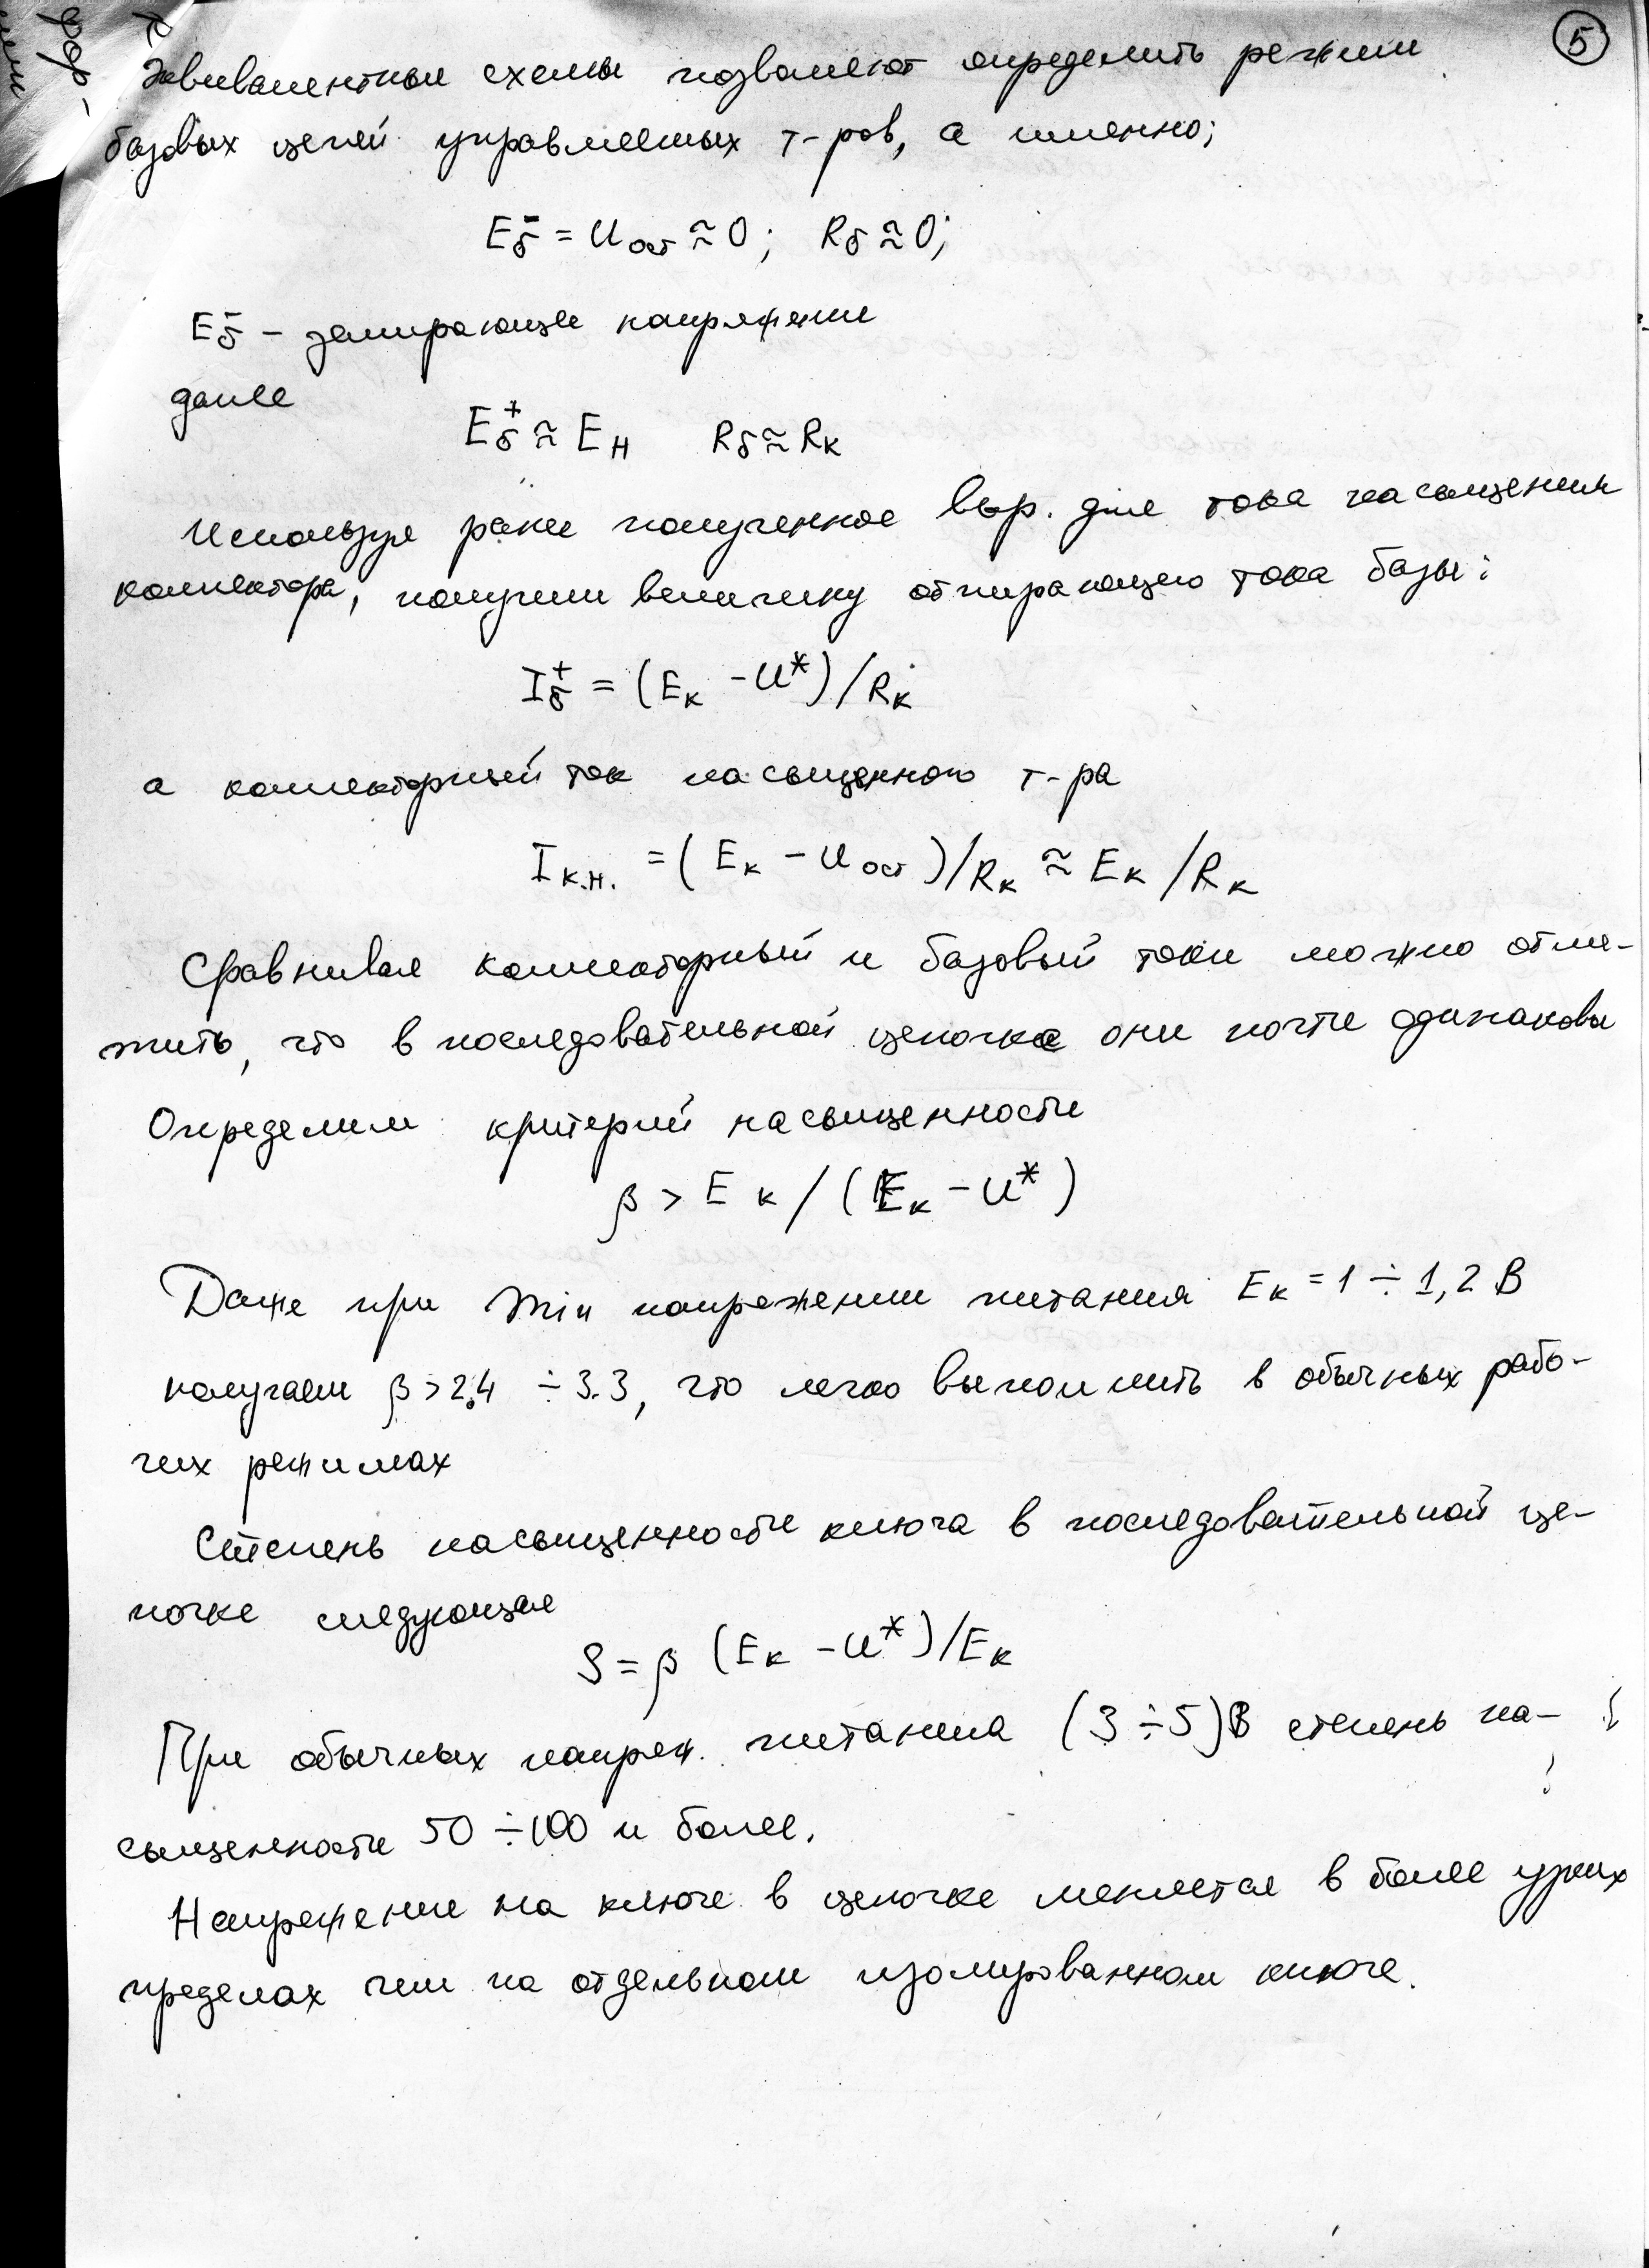 5
Эквивалентные схемы позволяют определить режим
базовых цепей управляемых т-ров, а именно;
Eб⁻ = Uост ≈ 0; Rб ≈ 0;
Eб⁻ - запирающее напряжение
далее
Eб⁺ ≈ Eн Rб ≈ Rк
Используя ранее полученное выр. для тока насыщения
коллектора, получим величину отпирающего тока базы:
Iб⁺ = (Eк - U*)/Rк
а коллекторный ток насыщенного т-ра
Iк.н. = (Eк - Uост)/Rк ≈ Eк/Rк
Сравнивая коллекторный и базовый токи можно
жить, что в последовательной цепочке они почти одинаковы
Определим критерий насыщенности
β > Eк/(Eк - U*)
Даже при min напряжении питания Eк = 1 ÷ 1,2 В
получаем β > 2.4 ÷ 3.3, что легко выполнить в обычных рабо-
чих режимах
Степень насыщенности ключа в последовательной це-
почке следующая
S = β (Eк - U*)/Eк
При обычных напряж. питания (3 ÷ 5)В степень на-
сыщенности 50 ÷ 100 и более.
Напряжение на ключе в цепочке меняется в более узких
пределах чем на отдельном изолированном ключе.